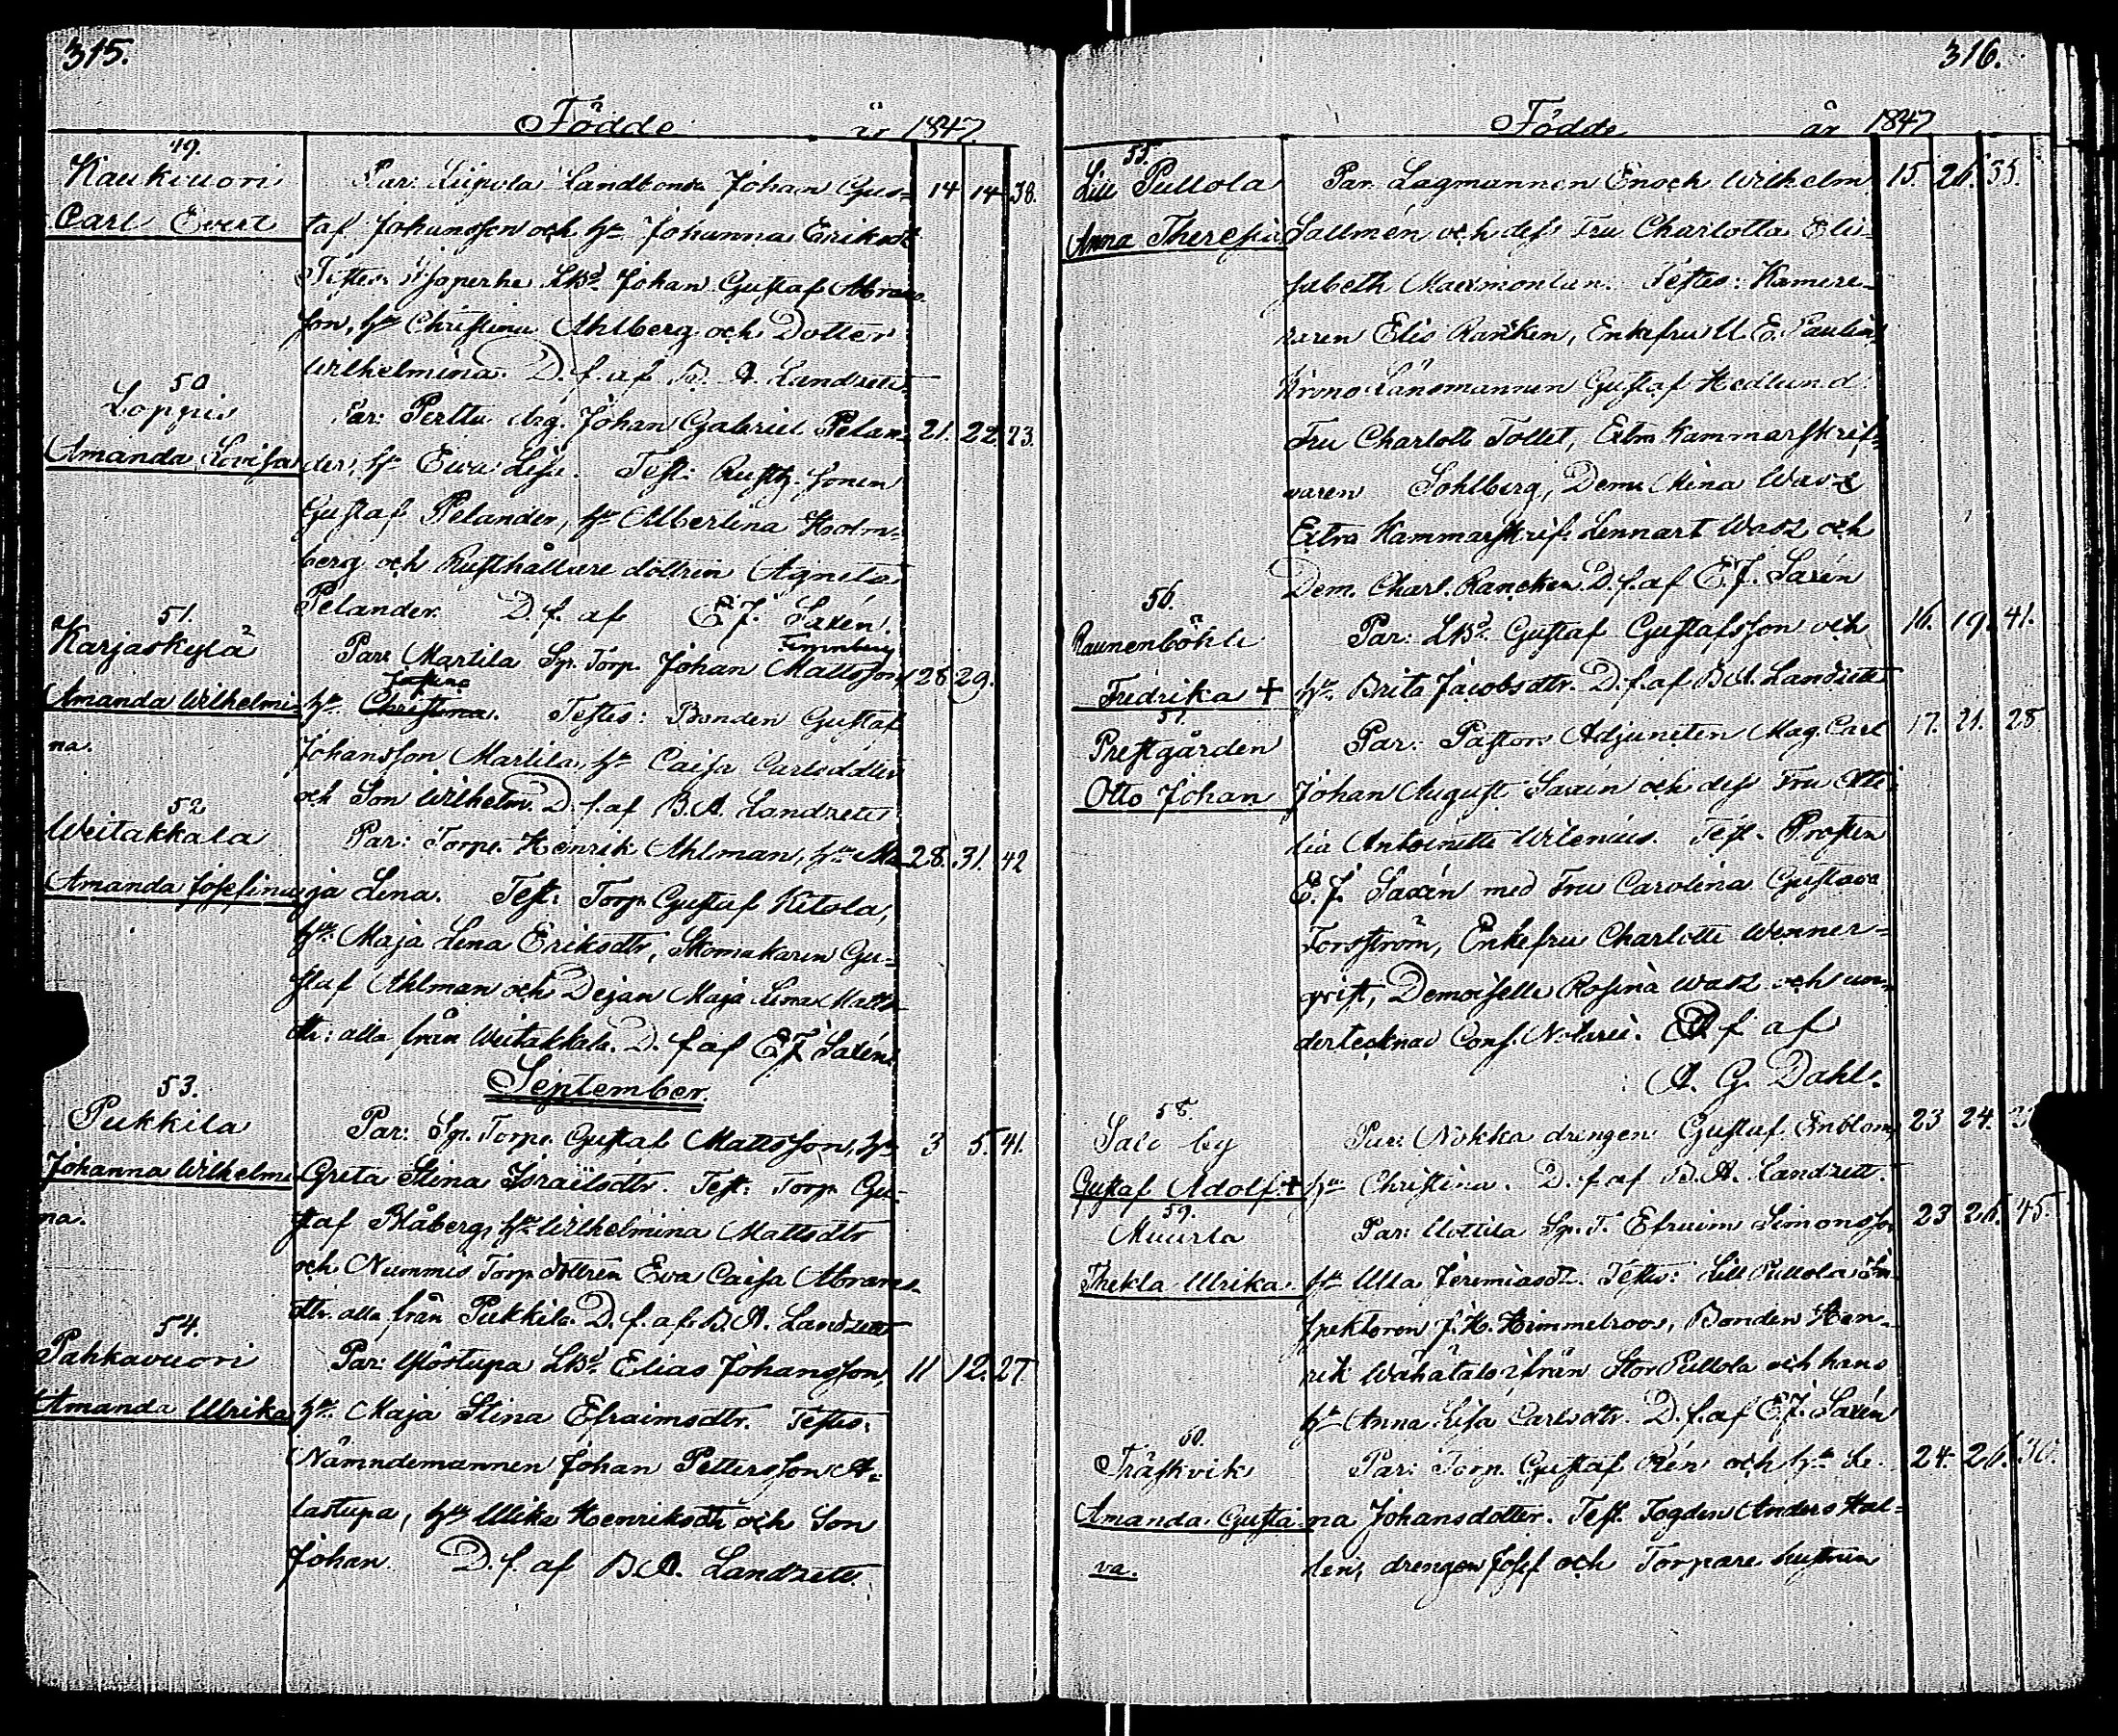 315.
Födde år 1847.
49.
Kaukvuori
Carl Evert
Par: Liipola Landbond. Johan Gus- 14 14 38.
taf Johansson och hu. Johanna Eriksdt
Testes: LBd. Johan Gustaf Abrams-
son, hu Christina Ahlberg och Dotter
Wilhelmina. D. f. af B. A. Landzett.
50
Loppis
Amanda Lovisa
Par: Perttu drg. Johan Gabriel Pelan- 21. 22 23.
der, hu Ewa Lisa. Test: Rusth. sonen
Gustaf Pelander, hu Albertina Holm-
berg och Rusthållare dottren Agneta
Pelander. D. f. af E. J. Saxén.
51.
Karjaskylä
Amanda Wilhelmi-
na.
Par: Martila Sp. Torp. Johan Mattsson, 28 29.
hu. Christina. Testes: Bonden Gustaf
Johansson Martila, hu Caisa Carlsdotter
och Son Wilhelm. D. f. af B. A. Landzett
52
Weitakkala
Amanda Josefina
Par: Torp. Henrik Ahlman, hu Ma- 28. 31. 42
ja Lena. Test: Torp. Gustaf Kitola,
hu. Maja Lena Eriksdtr, Skomakaren Gu-
staf Ahlman och Dejan Maja Lena Matts-
dtr: alla från Weitakkala. D. f. af E. J. Saxén.
September.
53.
Pukkila
Johanna Wilhelmi-
na.
Par: Sp. Torp. Gustaf Mattsson, hu 3 5. 41.
Greta Stina Israelsdtr. Test: Torp. Gu-
staf Blåberg, hu Wilhelmina Mattsdtr
och Nummis Torp. dottren Eva Caisa Abrams-
dtr. alla från Pukkila. D. f. af B. A. Landzett
54.
Pahkavuori
Amanda Ulrika
Par: Ylöstupa LBd. Elias Johansson, 11 12. 27.
hu. Maja Stina Efraimsdtr. Testes:
Nämndemannen Johan Pettersson A-
lastupa, hu Ulika Henriksdtr och Son
Johan. D. f. af B. A. Landzett.
316.
Födde år 1847
55.
Lill Pullola
Anna Theresia
Par. Lagmannen Enoch Wilhelm 15. 26. 35.
Sallmén och dess Fru Charlotta Eli-
sabeth Maexmontan. Testes: Kamere-
raren Elis Rancken, Enkefru U. E. Paulin,
Krono Länsmannen Gustaf Hedlund
Fru Charlotte Tollet, Extra Kammarskrif-
varen Sohlberg, Dem: Mina Wasz
Extra Kammarskrif. Lennart Wasz och
Dem. Charl. Rancken D. f. af E. J. Saxén
56.
Raunenböhle
Fredrika +
Par: LBd. Gustaf Gustafsson och 16. 19. 41.
hu. Brita Jacobsdtr. D. f. af B. A. Landzett
57.
Prestgården
Otto Johan
Par: Pastors Adjuncten Mag. Carl 17. 21. 28
Johan August Saxén och dess Fru Otti-
lia Antoinette Wilenius. Test. Prosten
E. J. Saxén med Fru Carolina Gustava
Forsström, Enkefru Charlotte Wenner-
qvist, Demoiselle Rosina Wasz och un-
dertecknad Cons. Notarie. D f af
A. G. Dahl.
58.
Salo by
Gustaf Adolf. +
Par: Nokka drengen Gustaf Enblom, 23 24.
hu Christina. D. f. af B. A. Landzett.
59.
Muurla
Thekla Ulrika.
Par: Uottila Sp. T. Efraim Simonsson 23 26. 45.
hu Ulla Jeremiasdt. Testes: Lill Pullola in-
spektoren J. H. Himmelroos, Bonden Hen-
rik Wähätalo ifrån Stor Pullola och hans
hu Anna Lisa Carlsdtr. D. f. af E. J. Saxén
60.
Träskvik
Amanda Gusta-
va.
Par: Torp. Gustaf Rén och hu. Le- 24. 26. 30.
na Johansdotter. Test. Fogden Anders Hal-
len, drengen Josef och Torpare hustrun